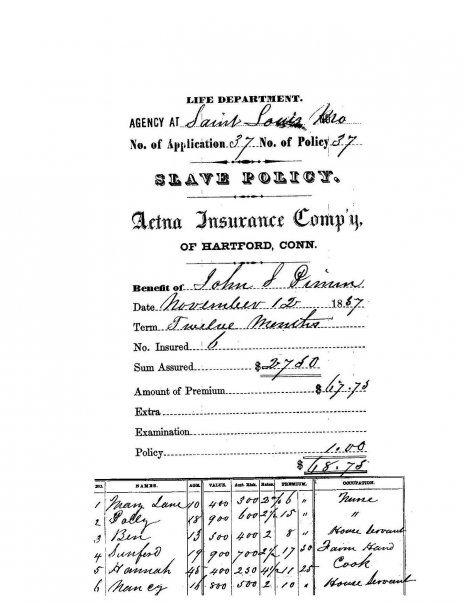 LIFE DEPARTMENT.
AGENCY AT Saint Louis Mo
No. of Application 37 No. of Policy 37
SLAVE POLICY.
Aetna Insurance Comp'y,
OF HARTFORD, CONN.
Benefit of John S
Date November 12 1857
Term Twelve Months
No. Insured 6
Sum Assured $2750
Amount of Premium $67.75
Extra
Examination
Policy 1.00
$68.75
NO. NAMES. AGE. VALUE. Amt. Risk. Rates. PREMIUM. OCCUPATION.
1 Mary Jane 10 400 300 2 6 " Nurse
2 Polly 18 900 600 2½ 15 " "
3 Ben 13 500 400 2 8 " House Servant
4 Sunford 19 900 700 2½ 17 50 Farm Hand
5 Hannah 45 400 250 4½ 11 25 Cook
6 Nancy 16 800 500 2 10 " House Servant